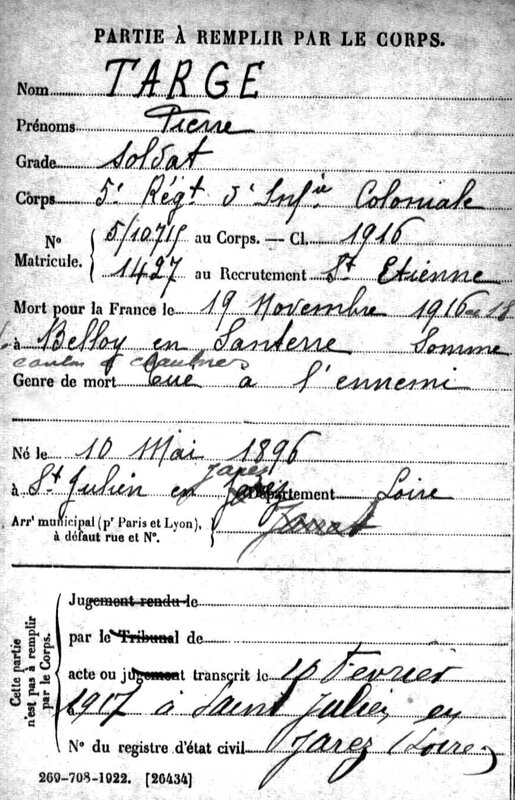 PARTIE À REMPLIR PAR LE CORPS.
Nom TARGE
Prénoms Pierre
Grade Soldat
Corps 5e Régt d'Infie Coloniale
N° Matricule. 5/10715 au Corps. — Cl. 1916
1427 au Recrutement St Etienne
Mort pour la France le 19 Novembre 1916
à Belloy en Santerre Somme
canton de chaulnes
Genre de mort tué à l'ennemi
Né le 10 Mai 1896
Jarez
à St Julien en Département Loire
Arrt municipal (pr Paris et Lyon),
à défaut rue et N°.
Cette partie n'est pas à remplir par le Corps.
Jugement rendu le
par le Tribunal de
acte ou jugement transcrit le Février
à 1917 à Saint Julien en
N° du registre d'état civil Jarez (Loire)
269-708-1922. [26434]